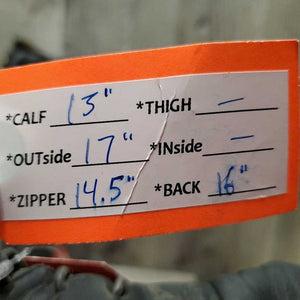 *CALF 15" *THIGH —
*OUTside 17" *INside —
*ZIPPER 14.5" *BACK 16"